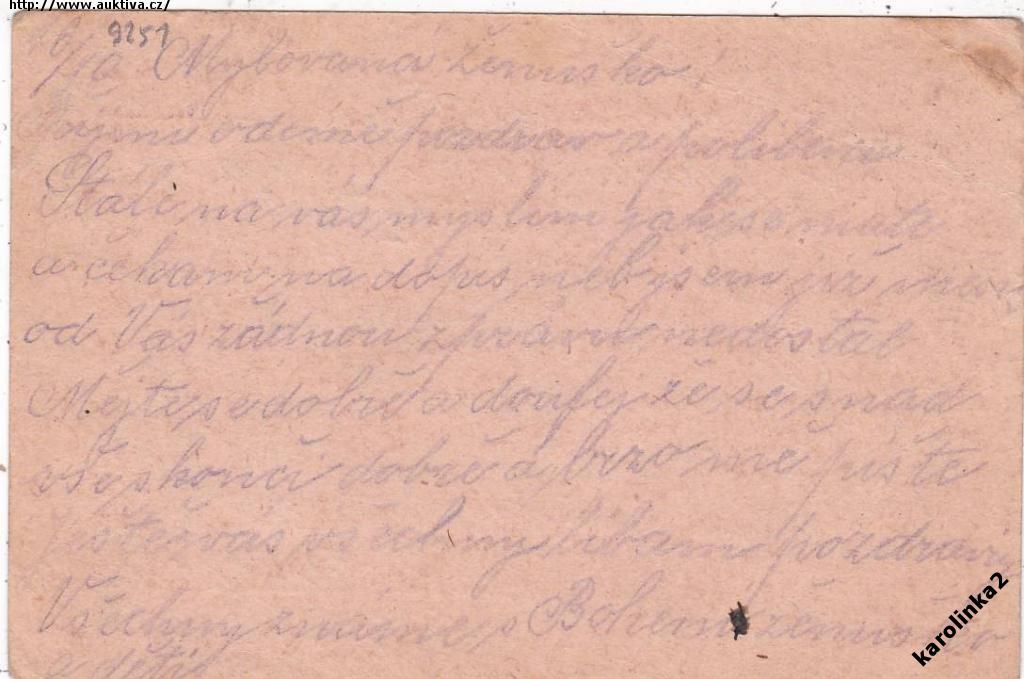 http://www.auktiva.cz/
9251
16/10 Mylovaná ženuško!
odemě pozdrav a políbení
Stále na vás myslím jak se máte
a čekám na dopis neb jsem již
od Vás žádnou zprávu nedostal
Mějte se dobře a doufej že se snad
vše skončí dobře a brzo mě pište
Ještě vás všechny líbám pozdravuj
Všechny známé s Bohem ženuško
a děti
karolinka2